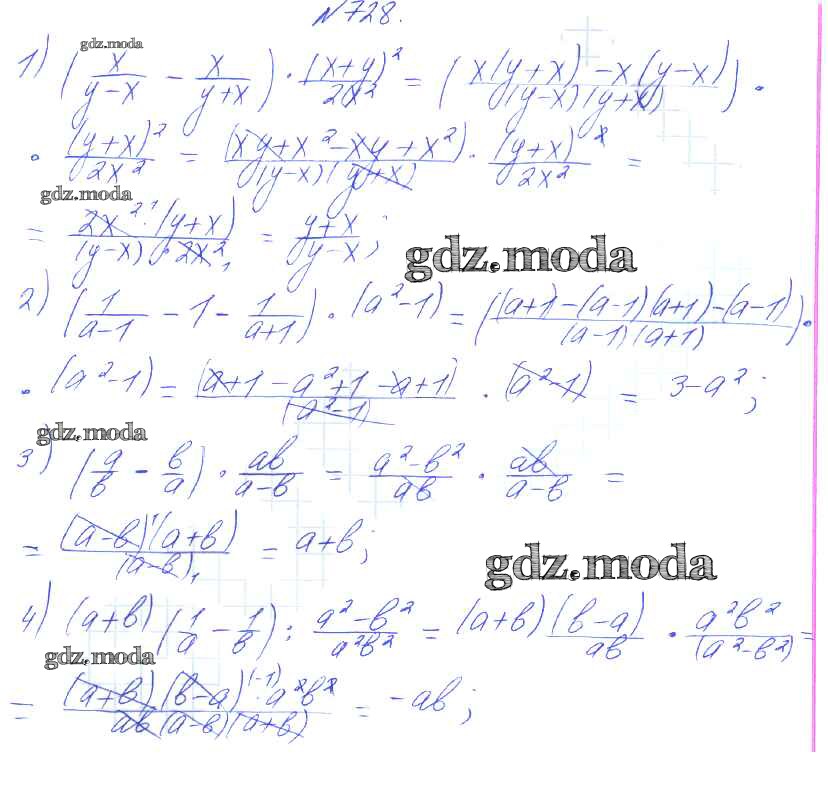 №728.
gdz.moda
1) (x/(y-x) - x/(y+x)) · (x+y)²/2x² = (x(y+x) - x(y-x))/((y-x)(y+x)) ·
· (y+x)²/2x² = (xy+x²-xy+x²)/((y-x)(y+x)) · (y+x)²/2x² =
gdz.moda
= 2x²·(y+x)/((y-x)·2x²) = (y+x)/(y-x);
gdz.moda
2) (1/(a-1) - 1 - 1/(a+1)) · (a²-1) = ((a+1)-(a-1)(a+1)-(a-1))/((a-1)(a+1)) ·
· (a²-1) = (a+1-a²+1-a+1)/(a²-1) · (a²-1) = 3-a²;
gdz.moda
3) (a/b - b/a) · ab/(a-b) = (a²-b²)/ab · ab/(a-b) =
= (a-b)(a+b)/(a-b) = a+b;
gdz.moda
4) (a+b)(1/a - 1/b) : (a²-b²)/a²b² = (a+b)(b-a)/ab · a²b²/(a²-b²) =
gdz.moda
= (a+b)(b-a)(-1)·a²b²/(ab(a-b)(a+b)) = -ab;